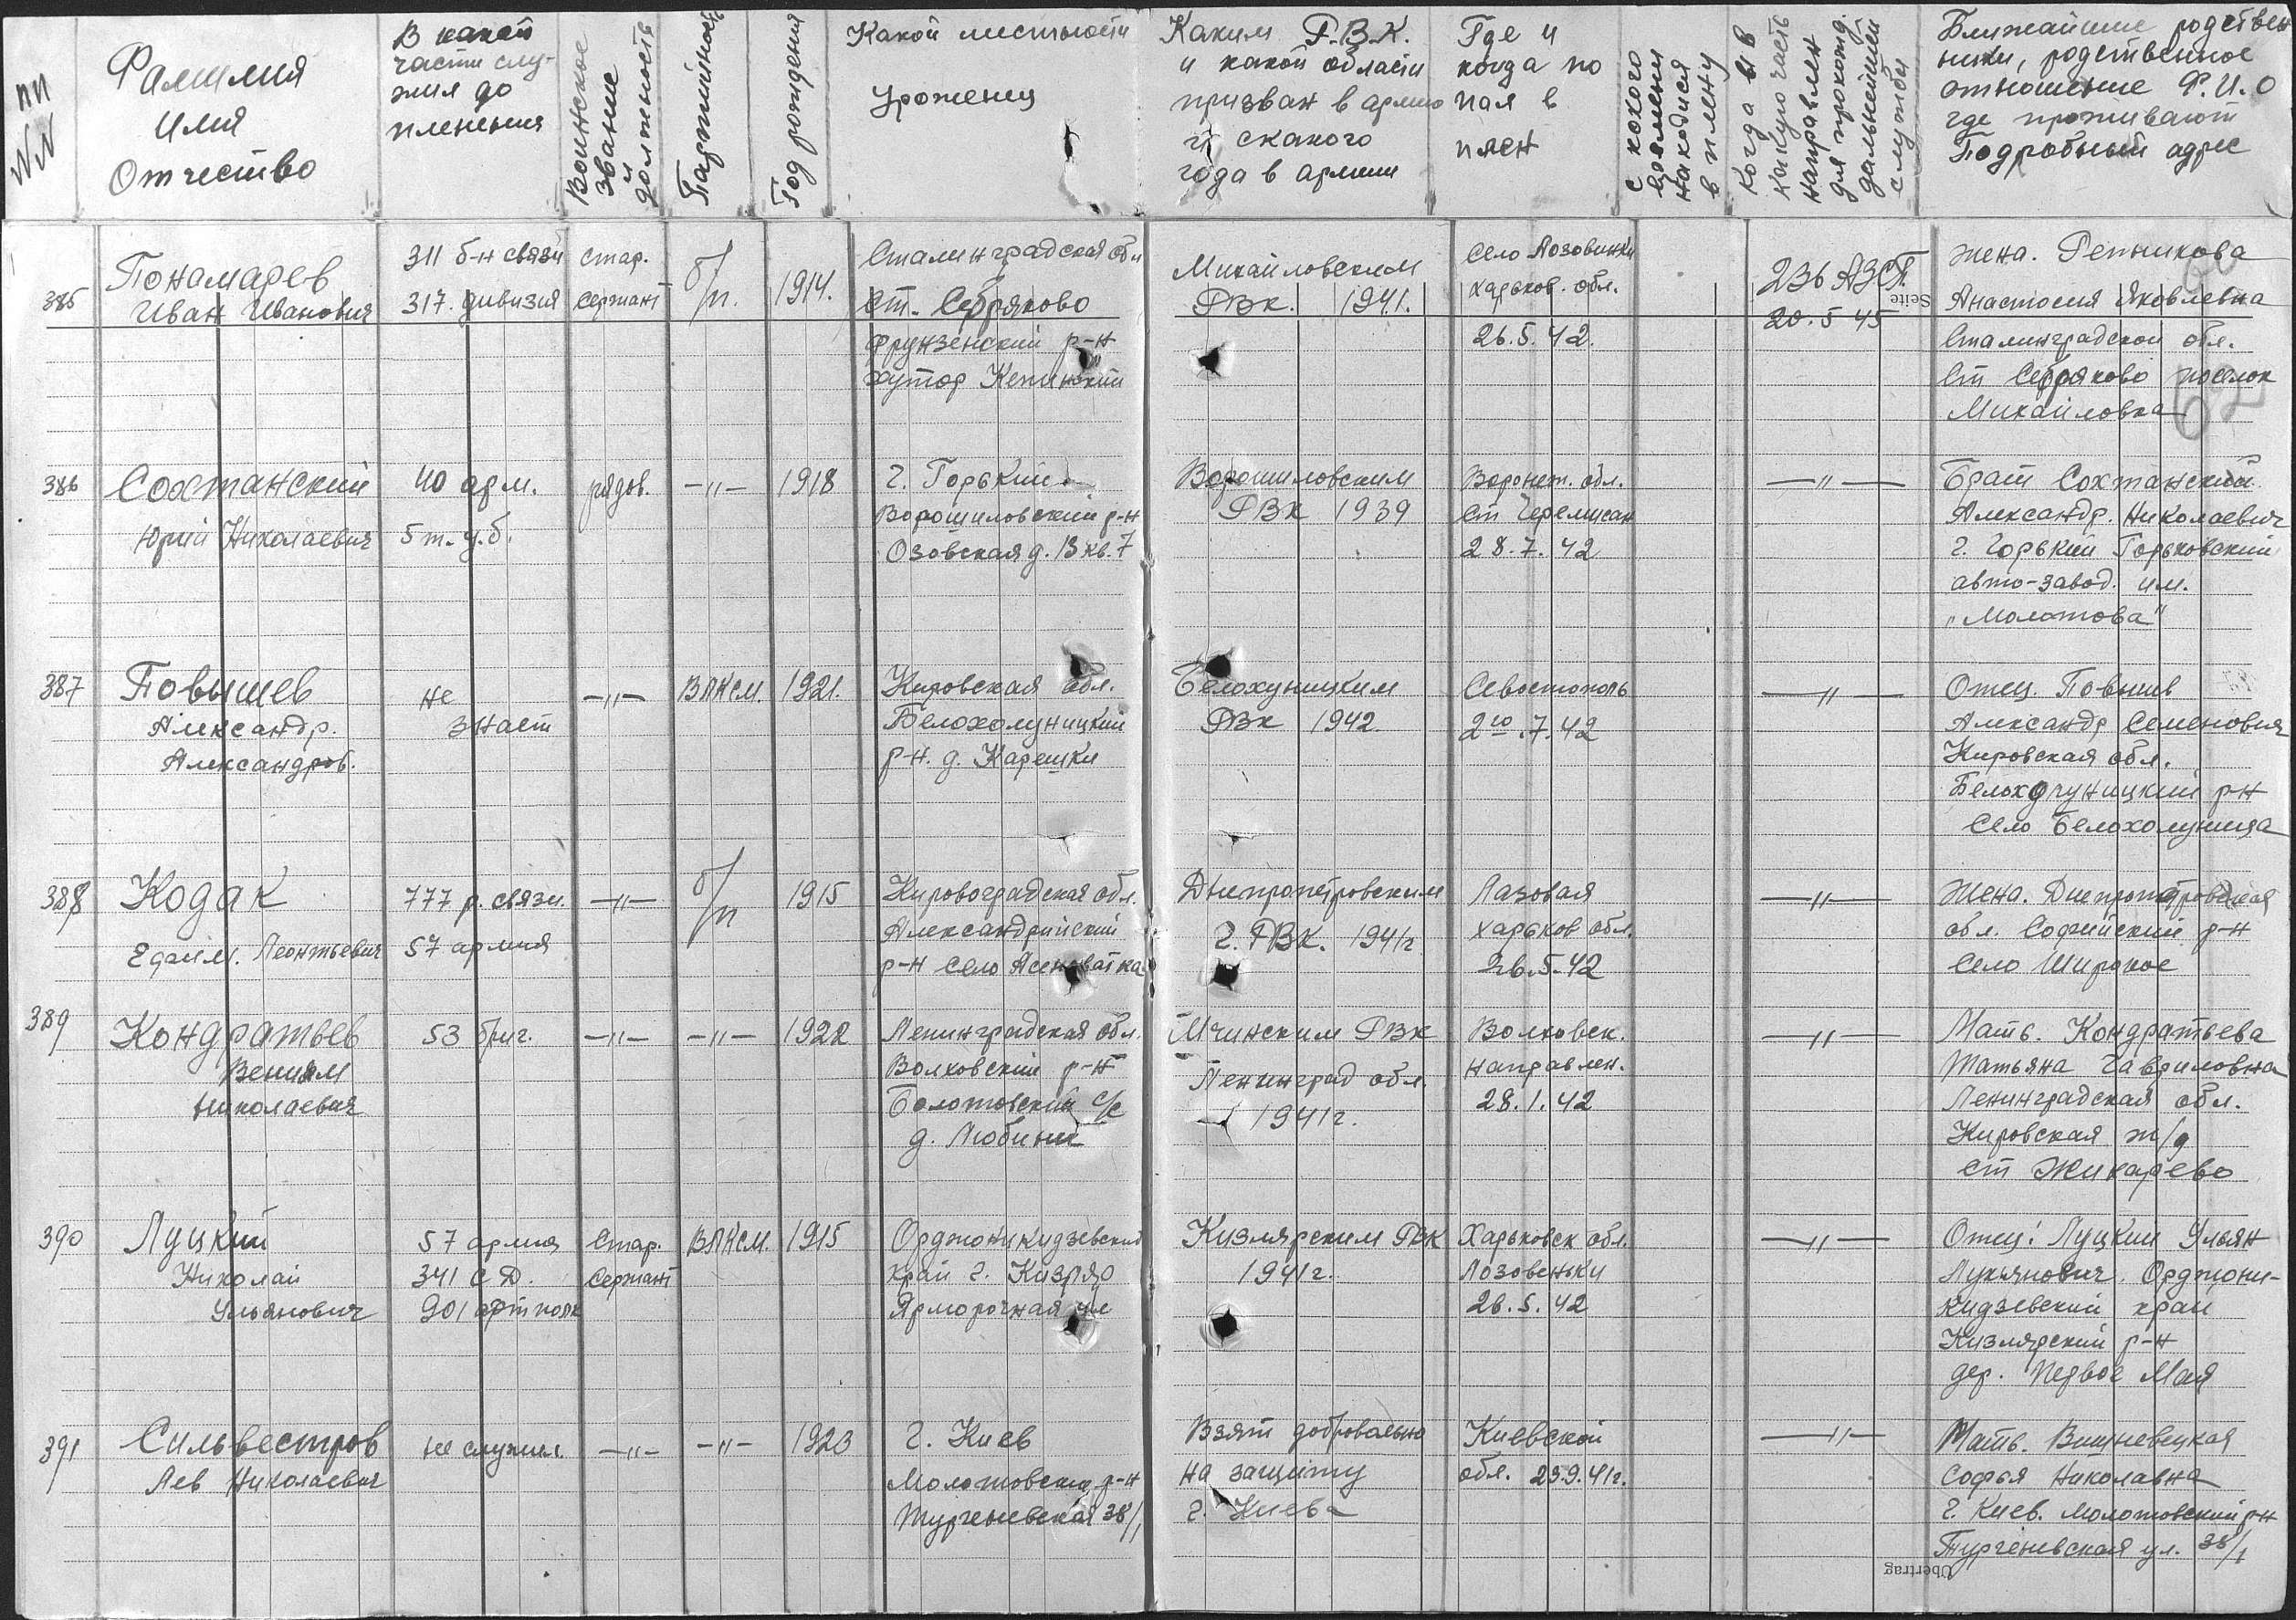 NN пп
Фамилия
Имя
Отчество
В какой
части слу-
жил до
пленения
Воинское
звание
и
должность
Партийность
Год рождения
Какой местности
Уроженец
Каким Р.В.К.
и какой области
призван в армию
и скакого
года в армии
Где и
когда по
пал в
плен
с кокого
времени
находися
в плену
Когда и в
какую часть
направлен
для прохожд.
дальнейшей
службы
Ближайшие родствен
ники, родственное
отношение Ф.И.О
где проживают
Подробный адрес
385
Пономарев
Иван Иванович
311 б-н связи
317. дивизия
стар.
сержант
б/п.
1914.
Сталинградская обл
ст. Себряково
Фрунзенский р-н
хутор
Михайловским
РВк. 1941.
Село Лозовинки
харьков. обл.
26.5.42.
236 АЗСП.
20.5 45
Seite
жена. Репникова
Анастосия Яковлевна
Сталинградской обл.
Ст Себряково поселок
Михайловка
62
386
Сохтанский
Юрий Николаевич
40 арм.
5 т.у.б.
рядов.
—"—
1918
г. Горький.
Ворошиловский р-н
Озовская д. 13 кв. 7
Ворошиловским
РВк 1939
Воронеж. обл.
ст Черемисан
28.7.42
—"—
Брат Сохтанский
Александр. Николаевич
г. Горький Горьковский
авто-завод. им.
„Молотова"
387
Повышев
Александр.
Александров.
не
знает
—"—
ВЛКСМ.
1921.
Кировская обл.
Белохолуницкий
р-н. д. Карешки
Белохуницким
РВк 1942.
Севостополь
2го.7.42
—"—
Отец. Повышев
Александр Семенович
Кировская обл.
Белохолуницкий р-н
Село Белохолуница
388
Кодак
Ефим. Леонтьевич
777 р. связи.
57 армия
—"—
б/п
1915
Кировоградская обл.
Александрийский
р-н село Ясеноватка
Днепропетровским
г. РВК. 1941г
Лазовая
харьков обл.
26.5.42
—"—
Жена. Днепропетровская
обл. Софийский р-н
Село Широкое
389
Кондратьев
Вениям
Николаевич
53 бриг.
—"—
—"—
1922
Ленинградская обл.
Волховский р-н
Болотовский с/с
д. Любинец
Мгинским РВк
Ленинград обл.
1941г.
Волховск.
направлен.
28.1.42
—"—
Мать. Кондратьева
Татьяна Гавриловна
Ленинградская обл.
Кировская ж/д
ст Жихарево
390
Луцкий
Николай
Ульянович
57 армия
341 С Д.
901 арт полк
Стар.
Сержант
ВЛКСМ.
1915
Орджоникидзевский
край г. Кизляр
Ярморочная ул
Кизлярским РВК
1941г.
Харьковск обл.
Лозовеньки
26.5.42
—"—
Отец: Луцкий Ульян
Лукьянович. Орджони-
кидзевский край
Кизлярский р-н
дер. Первое Мая
391
Сильвестров
Лев Николаевич
не служил.
—"—
—"—
1923
г. Киев
Молотовский р-н
Тургеневская 38/1
Взят добровольно
на защиту
г. Киева
Киевской
обл. 23.9.41г.
—"—
Мать. Вишневецкая
Софья Николавна
г. Киев. Молотовский р-н
Тургеневская ул. 38/1
Übertrag